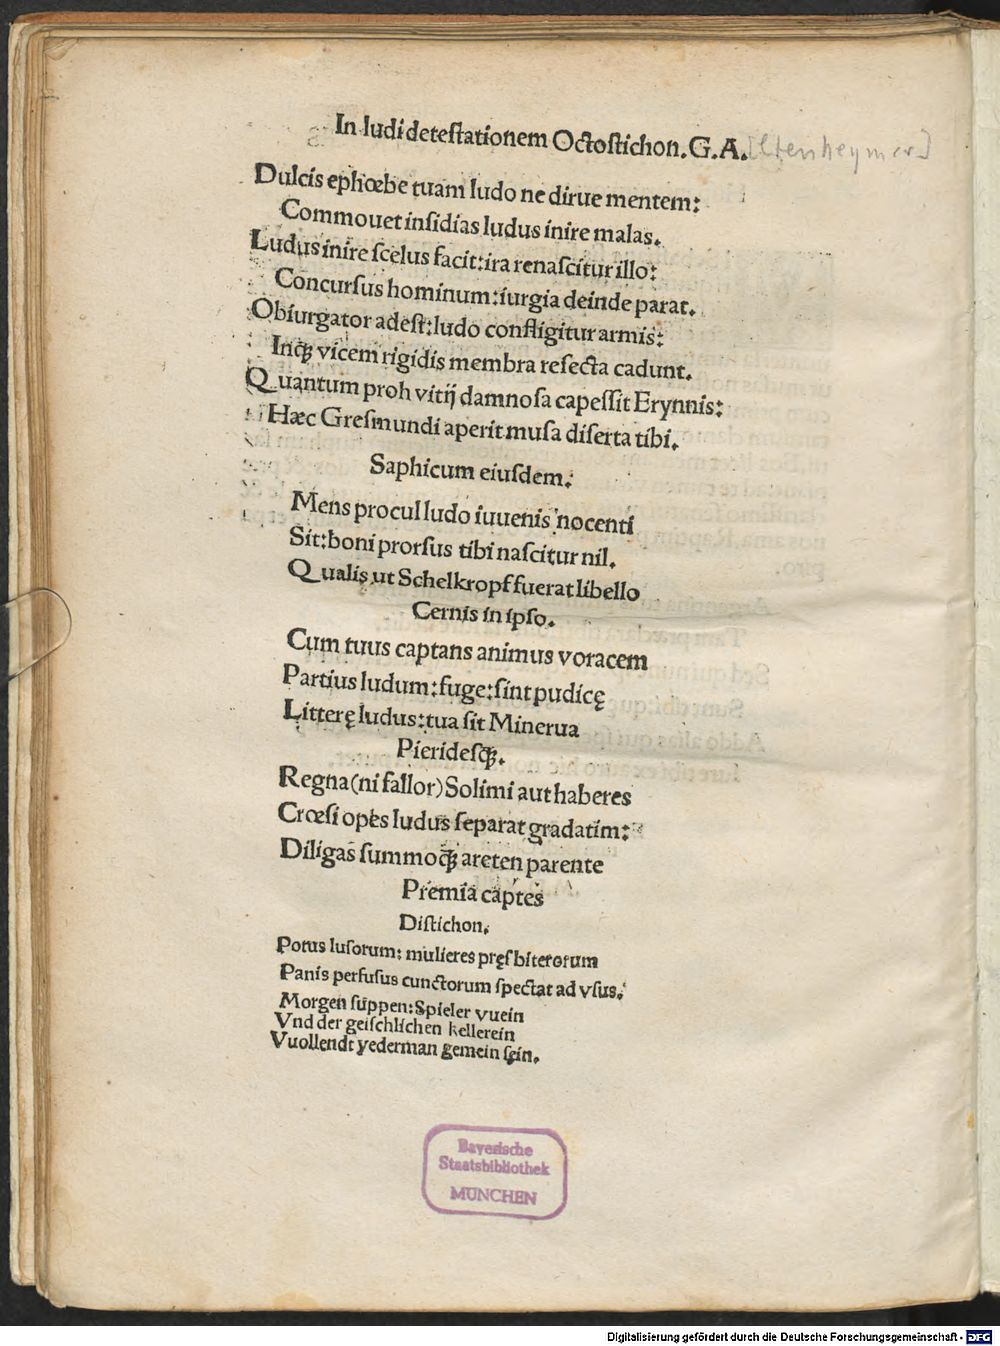 In ludi detestationem Octostichon. G. A. [ltenheymer]
Dulcis ephœbe tuam ludo ne dirue mentem:
Commouet insidias ludus inire malas.
Ludus inire scelus facit: ira renascitur illo:
Concursus hominum: iurgia deinde parat.
Obiurgator adest: ludo confligitur armis:
Inqꝫ vicem rigidis membra resecta cadunt.
Quantum proh vitij damnosa capessit Erynnis:
Hæc Gresmundi aperit musa diserta tibi.
Saphicum eiusdem:
Mens procul ludo iuuenis nocenti
Sit: boni prorsus tibi nascitur nil.
Qualis ut Schelkropf fuerat libello
Cernis in ipso.
Cum tuus captans animus voracem
Partius ludum: fuge: sint pudicę
Litterę ludus: tua sit Minerua
Pieridesqꝫ.
Regna (ni fallor) Solimi aut haberes
Crœsi opes ludus separat gradatim:
Diligas summoqꝫ areten parente
Premia captes
Distichon.
Potus lusorum: mulieres pręsbiterorum
Panis perfusus cunctorum spectat ad vsus.
Morgen suppen: Spieler vuein
Vnd der geischlichen kellerein
Vuollendt yederman gemein sein.
Bayerische
Staatsbibliothek
MÜNCHEN
Digitalisierung gefördert durch die Deutsche Forschungsgemeinschaft - DFG